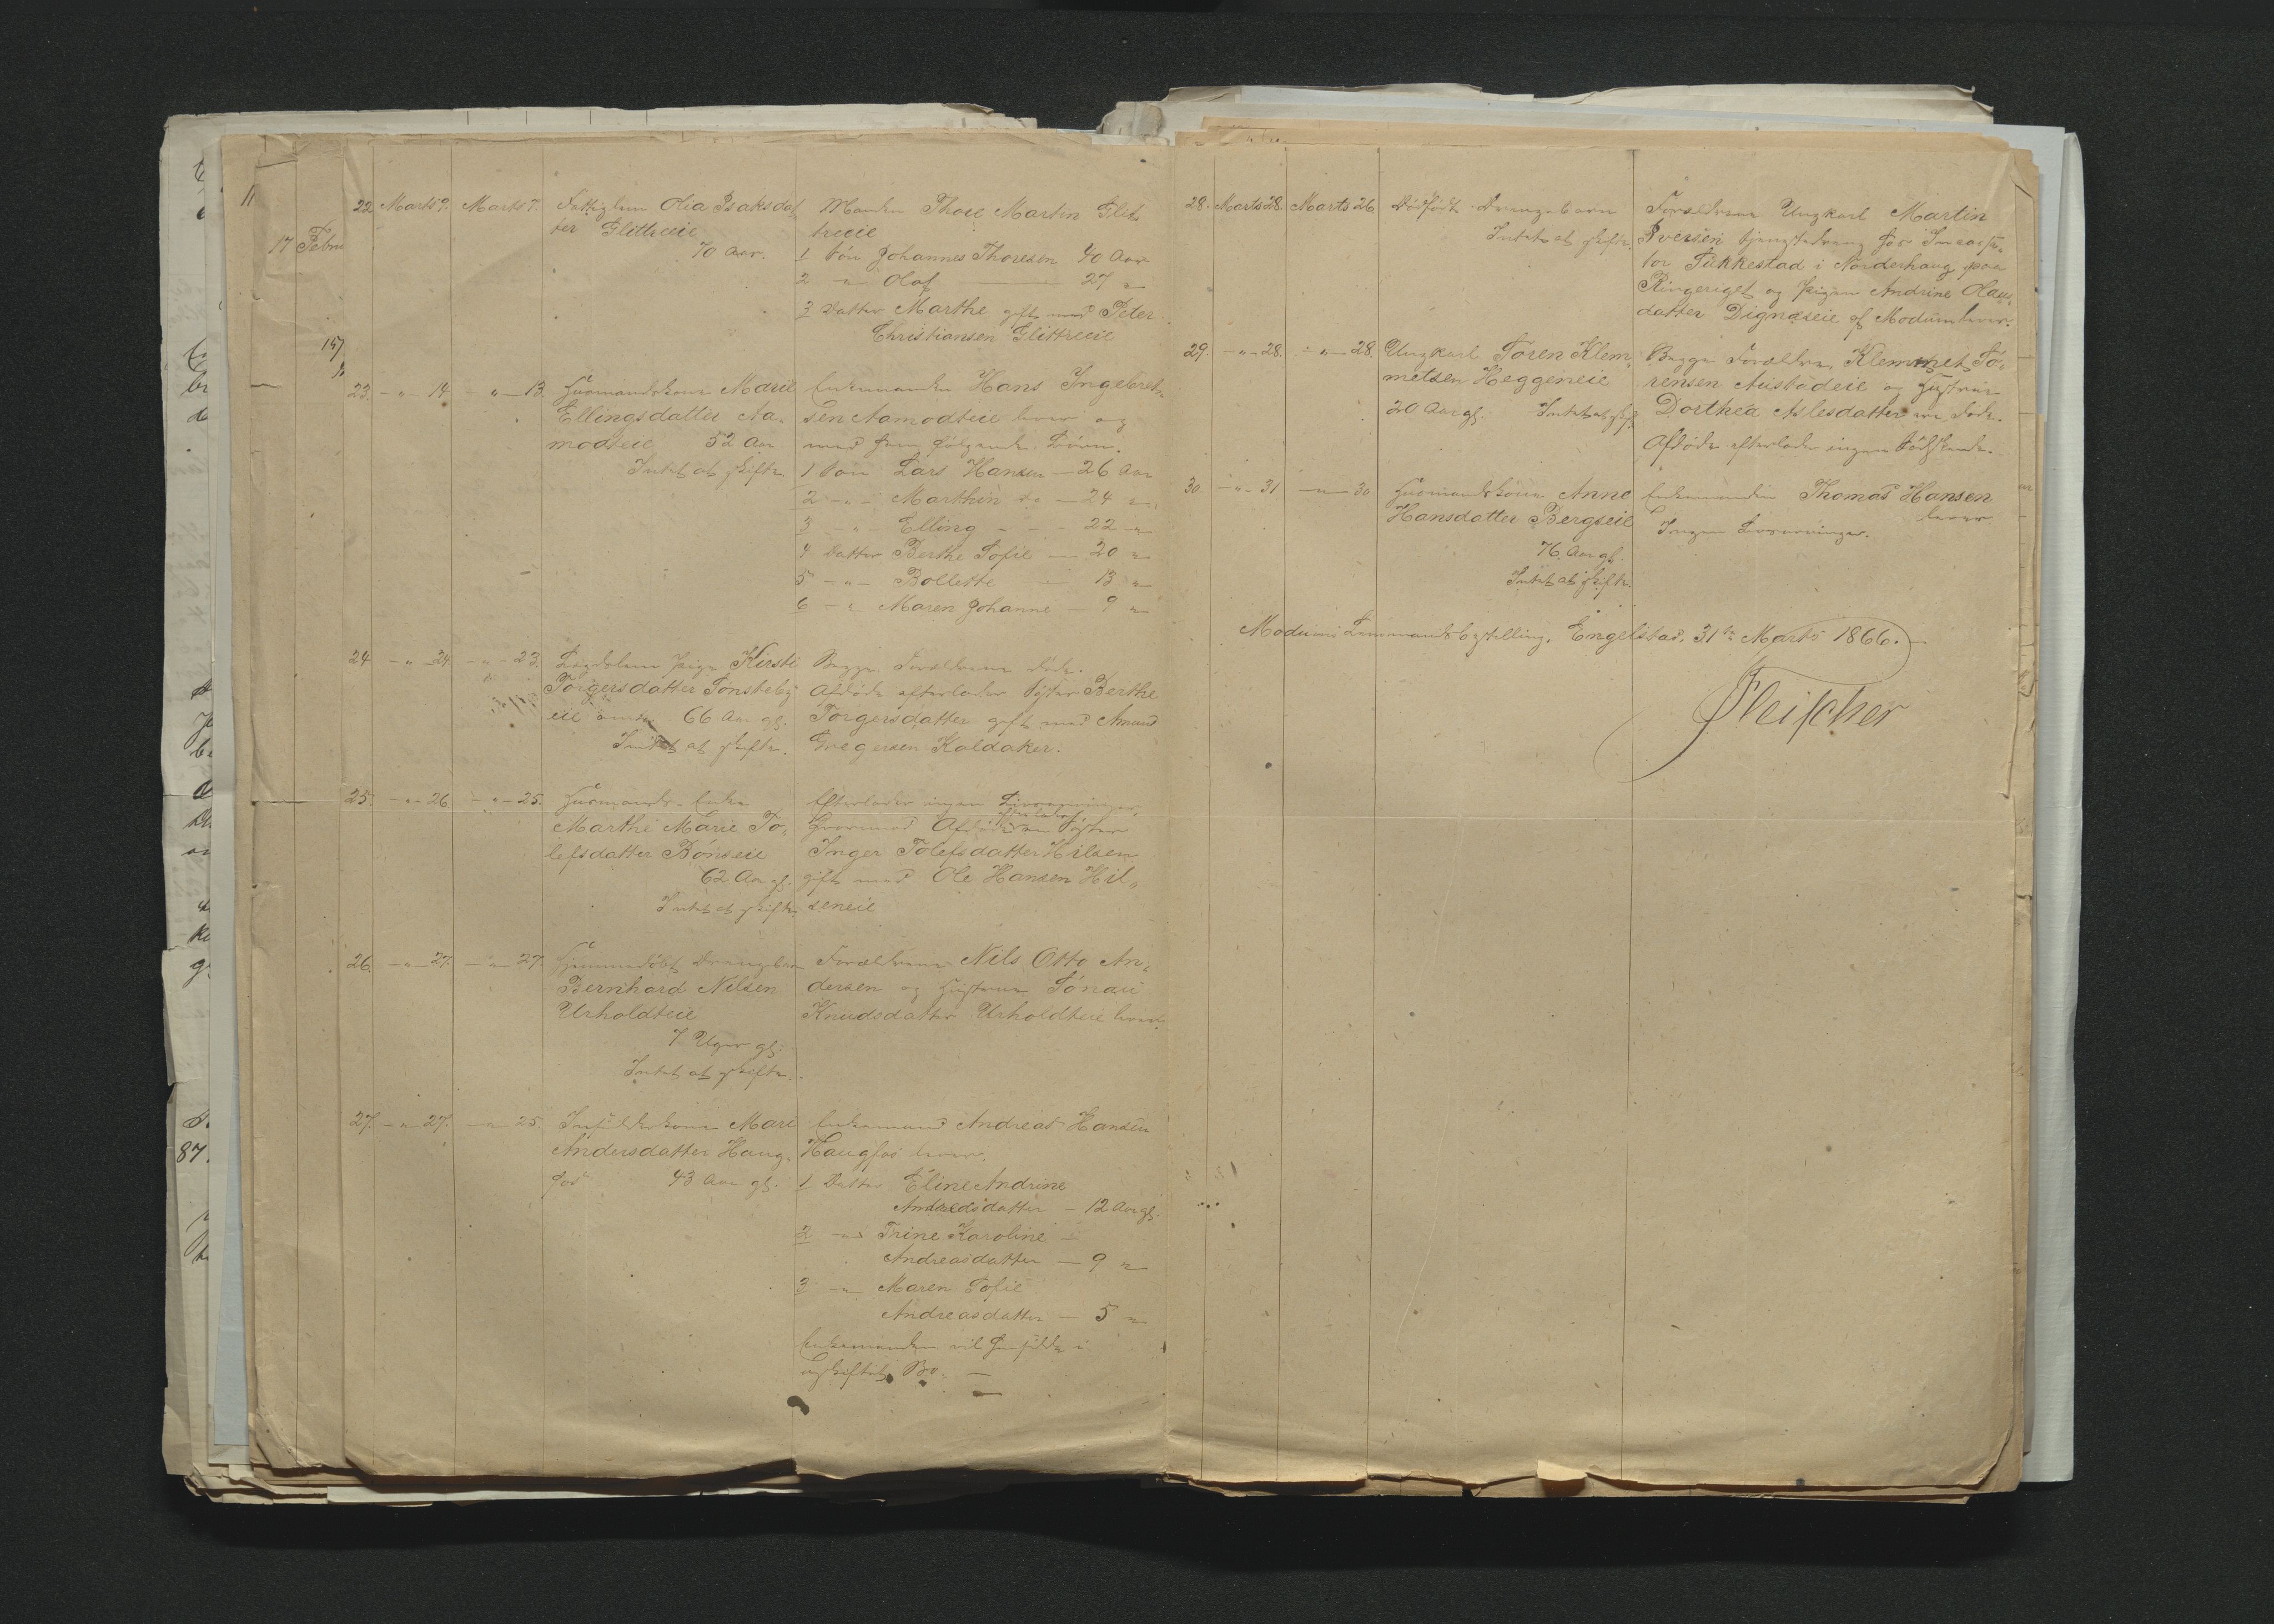 17 Febru
22 Marts 9. Marts 7. Fattiglem Olia Isaksdat
ter Glittreeie
70 Aar.
Manden Thore Martin Glit
treeie
1 Søn Johannes Thoresen 40 Aar
2 -"- Olaf — 27 "
3 Datter Marthe gift med Peter
Christiansen Glittreeie
23. -"- 14 -"- 13. Huusmandskone Marie
Ellingsdatter Aa-
modteie 52 Aar
Intet at skifte
Enkemanden Hans Ingebret-
sen Aamodteie lever og
med ham følgende Børn.
1 Søn Lars Hansen — 26 Aar
2 -"- Marthin do — 24 "
3 -"- Elling - - - 22 "
4 Datter Berthe Sofie — 20 "
5 -"- Bollette — 13 "
6 -"- Maren Johanne — 9 "
24 -"- 24. -"- 23. Lægdslem Pige Kirsti
Torgersdatter Tonsteby
eie 66 Aar gl.
Intet at skifte.
Begge Forældrene døde.
Afdøde efterlader Søster Berthe
Torgersdatter gift med Amund
Gregersen Kaldaker.
25. -"- 26 -"- 25. Huusmands-Enke
Marthe Marie To-
lefsdatter Bønseie
62 Aar gl.
Intet at skifte.
Efterlader ingen Livsarvinger,
hvorimod Afdøde efterladt en Søster
Inger Tolefsdatter Hilsen
gift med Ole Hansen Hil-
seneie
26. -"- 27. -"- 27. Hjemmedøbt Drengebarn
Bernhard Nilsen
Urholdteie
7 Uger gl.
Intet at skifte.
Forældrene Nils Otto An-
dersen og Hustrue Tonau
Knudsdatter Urholdteie lever.
27. -"- 27. -"- 25 Insidderkone Mari
Andersdatter Haug-
fos 43 Aar gl.
Enkemand Andreas Hansen
Haugfos lever.
1 Datter Eline Andrine
Andreasdatter — 12 Aar gl.
2 -"- Trine Karoline —
Andreasdatter — 9 "
3 -"- Maren Sofie
Andreasdatter — 5 "
Enkemanden vil hensidde i
uskiftet Bo. —
28. Marts 28. Marts 26 Dødfødt Drengebarn
Intet at skifte.
Forældrene Ungkarl Martin
Iversen tjenestedreng hos
Tukkestad i Norderhaug paa
Ringeriget og Pigen Andrine Olaus-
datter Dignæseie af Modum lever.
29. -"- 28. -"- 28. Ungkarl Søren Klem-
metsen Heggeneie
20 Aar gl. Intet at skifte
Begge Forældre, Klemmet Sø-
rensen Austadeie og Hustrue
Dorthea Aslesdatter ere døde.
Afdøde efterlader ingen Sødskende.
30. -"- 31 -"- 30 Huusmandskone Anne
Hansdatter Bergseie
76 Aar gl.
Intet at skifte
Enkemanden Thomas Hansen
lever.
Ingen Livsarvinger.
Modums Lensmandsbestilling, Engelstad, 31te Marts 1866.
Fleischer